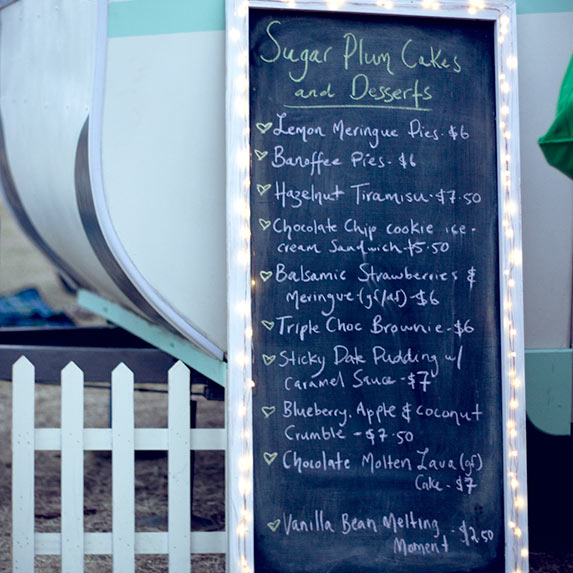 Sugar Plum Cakes
and Desserts
Lemon Meringue Pies - $6
Banoffee Pies - $6
Hazelnut Tiramisu - $7.50
Chocolate Chip cookie ice-
cream Sandwich - $5.50
Balsamic Strawberries &
Meringue (gf/df) - $6
Triple Choc Brownie - $6
Sticky Date Pudding w/
Caramel Sauce - $7
Blueberry, Apple & coconut
Crumble - $7.50
Chocolate Molten Lava (gf)
Cake - $7
Vanilla Bean Melting - $2.50
Moment